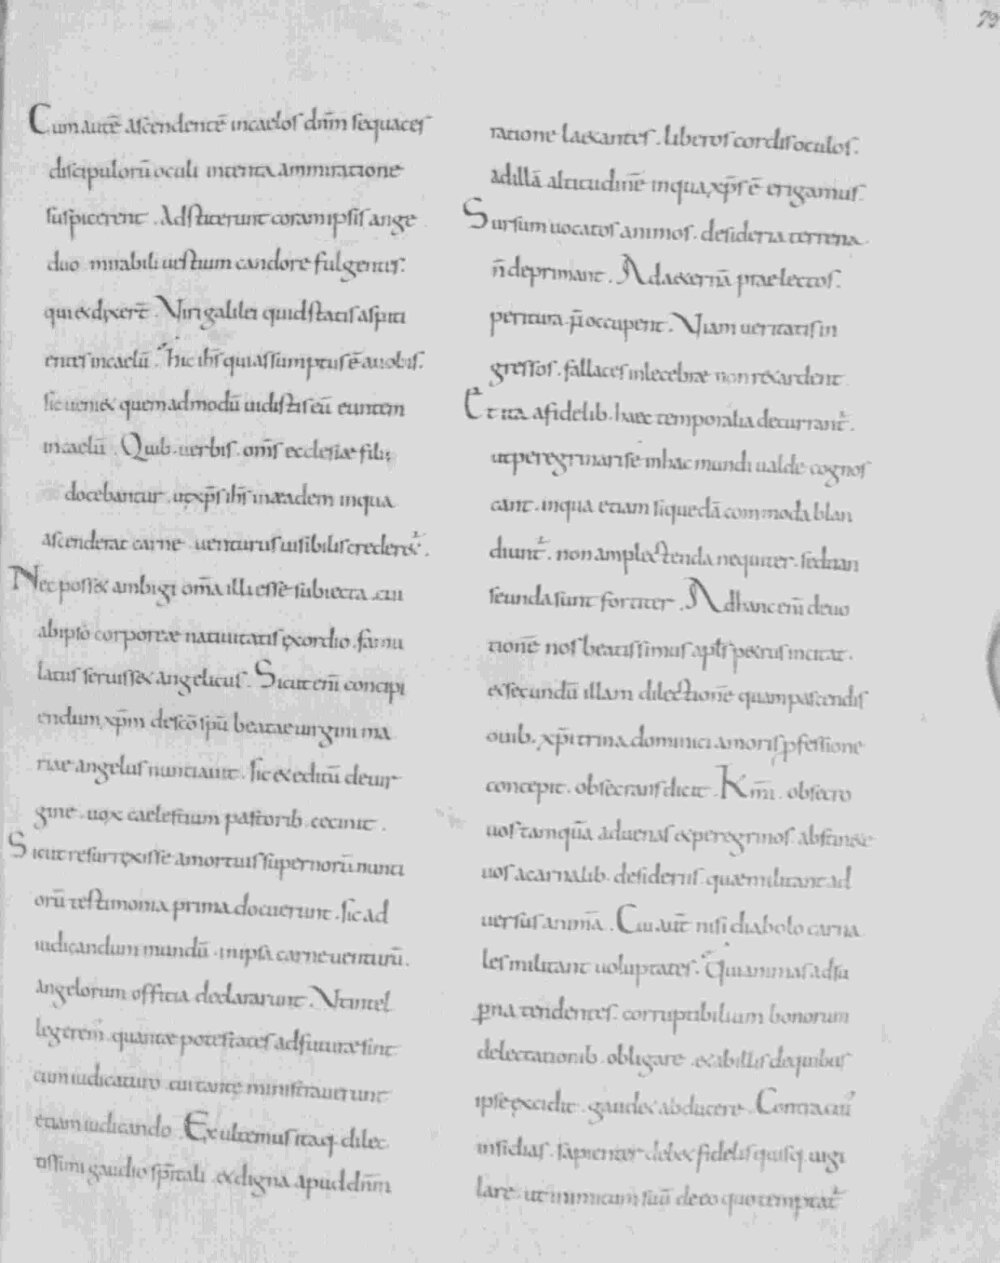 79
Cum autē ascendentē in caelos dn̄m sequaces
discipulorū oculi intenta ammiratione
suspicerent . Adstiterunt coram ipsis ange
duo mirabili uestium candore fulgentes:
qui & dixer̄t . Viri galilei quid statis aspici
entes in caelū . hic ih̄s qui assumptus ē a uobis.
sic ueni& quem admodū uidistis eū euntem
in caelū . Quib. uerbis . om̄s ecclesiae filii
docebantur . ut xp̄s ih̄s in eadem in qua
ascenderat carne . uenturus uisibilis crederet̉ .
Nec poss& ambigi om̄a illi esse subiecta . cui
ab ipso corporeae natiuitatis exordio . famu
latus seruiss& angelicus . Sicut eni̅ concipi
endum xp̄m de sc̄o sp̄u beatae uirgini ma
riae angelus nuntiauit . sic & editū de uir
gine . uox caelestium pastorib. cecinit .
Sicut resurrexisse a mortuis supernorū nunti
orū testimonia prima docuerunt . sic ad
iudicandum mundū . in ipsa carne uenturū .
angelorum officia declararunt . Vt intel
legerem̉ . quantae potestates adfuturae sint
cum iudicaturo . cui tante ministrauerunt
etiam iudicando . Exultemus itaq. dilec
tissimi gaudio sp̄itali . & digna apud dn̄m
ratione laetantes . liberos cordis oculos .
ad illā altitudinē in qua xp̄s ē erigamus .
Sursum uocatos animos . desideria terrena
n̄ deprimant . Ad aeternā praelectos .
peritura p̄occupent . Viam ueritatis in
gressos . fallaces inlecebrae non retardent
Et ita a fidelib. haec temporalia decurrant̉ .
ut peregrinari se in hac mundi ualde cognos
cant . in qua etiam si quedā commoda blan
diunt̉ . non amplectenda nequiter . sed tran
seunda sunt fortiter . Ad hanc eni̅ deuo
tionē nos beatissimus apl̄s p&rus incitat .
& secundū illam dilectionē quam pascendis
ouib. xp̄i trina dominici amoris p̱fessione
concepit . obsecrans dicit . Km̄i . obsecro
uos tamquā aduenas & peregrinos . abstine&e
uos a carnalib. desideriis quae militant ad
uersus animā . Cui aūt nisi diabolo carna
les militant uoluptates . Qui animas ad su
p̱na tendentes . corruptibilium bonorum
delectationib. obligare . & ab illis de quibus
ipse excidit . gaud& abducere . Contra cuỉ
insidias . sapienter deb& fidelis quisq. uigi
lare . ut inimicum suū de eo quo temptat̉